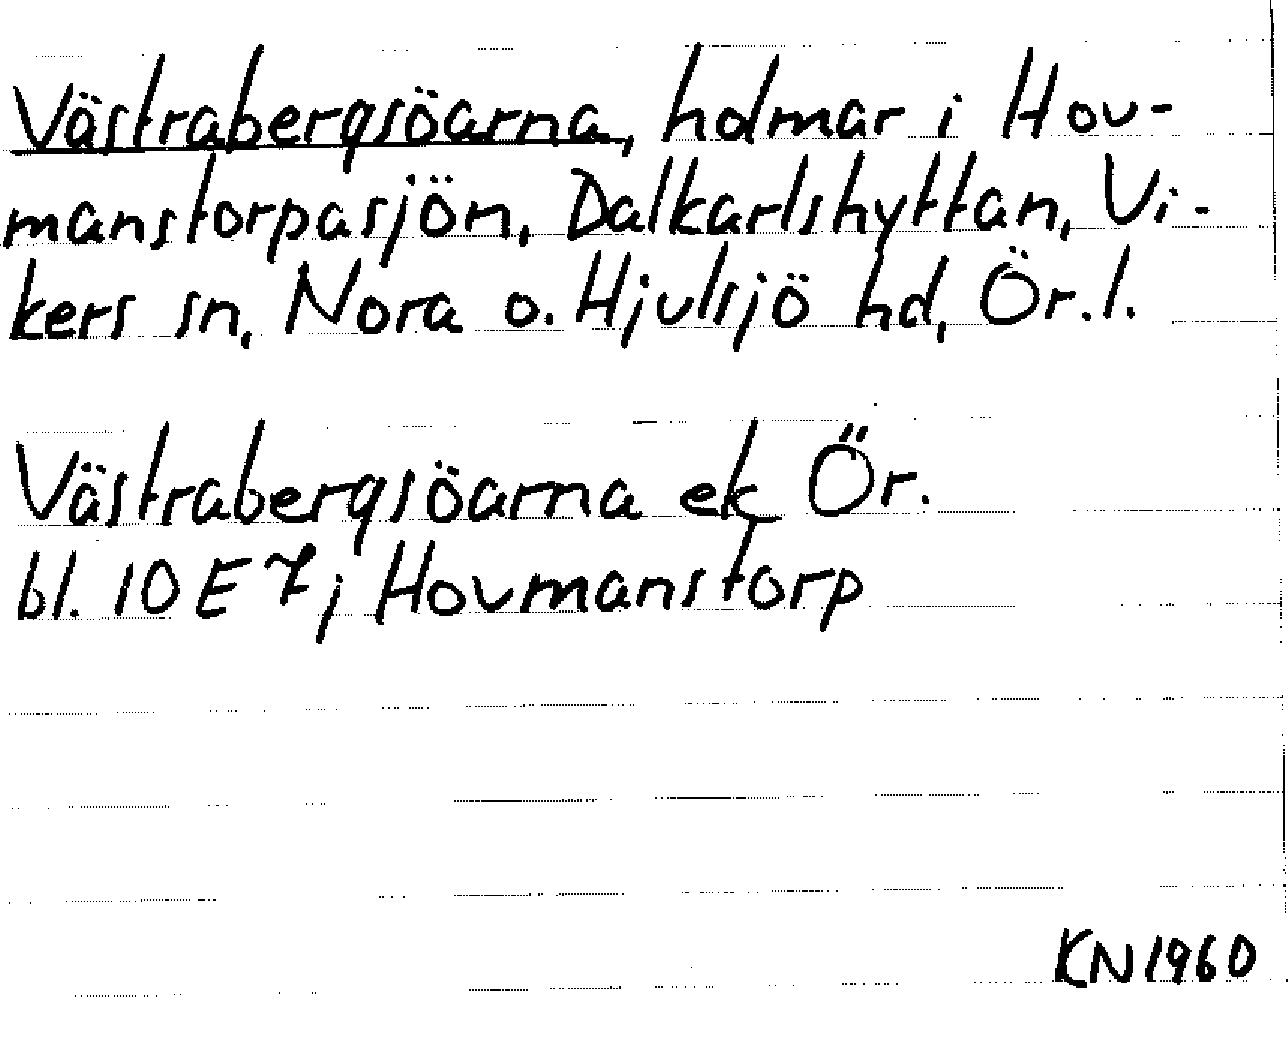 Västrabergsöarna, holmar i Hov-
manstorpasjön, Dalkarlshyttan, Vi-
kers sn, Nora o. Hjulsjö hd, Ör. l.
Västrabergsöarna ek Ör.
bl. 10 E 7; Hovmanstorp
KN 1960